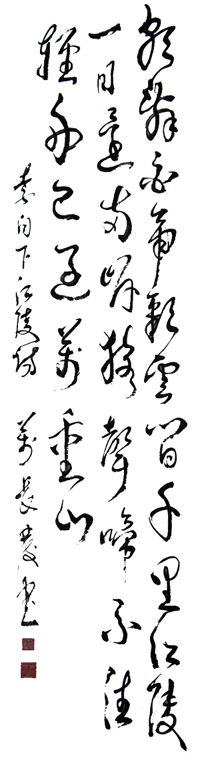 朝辭白帝彩雲間千里江陵
一日還兩岸猿聲啼不住
輕舟已過萬重山
李白下江陵詩 萬長慶書